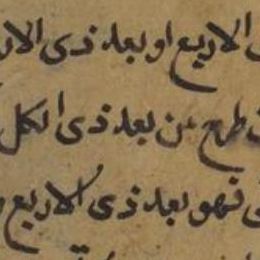 الاربع او بعد ذى الار
طرح من بعد ذى الكل
فهو بعد ذى الاربع